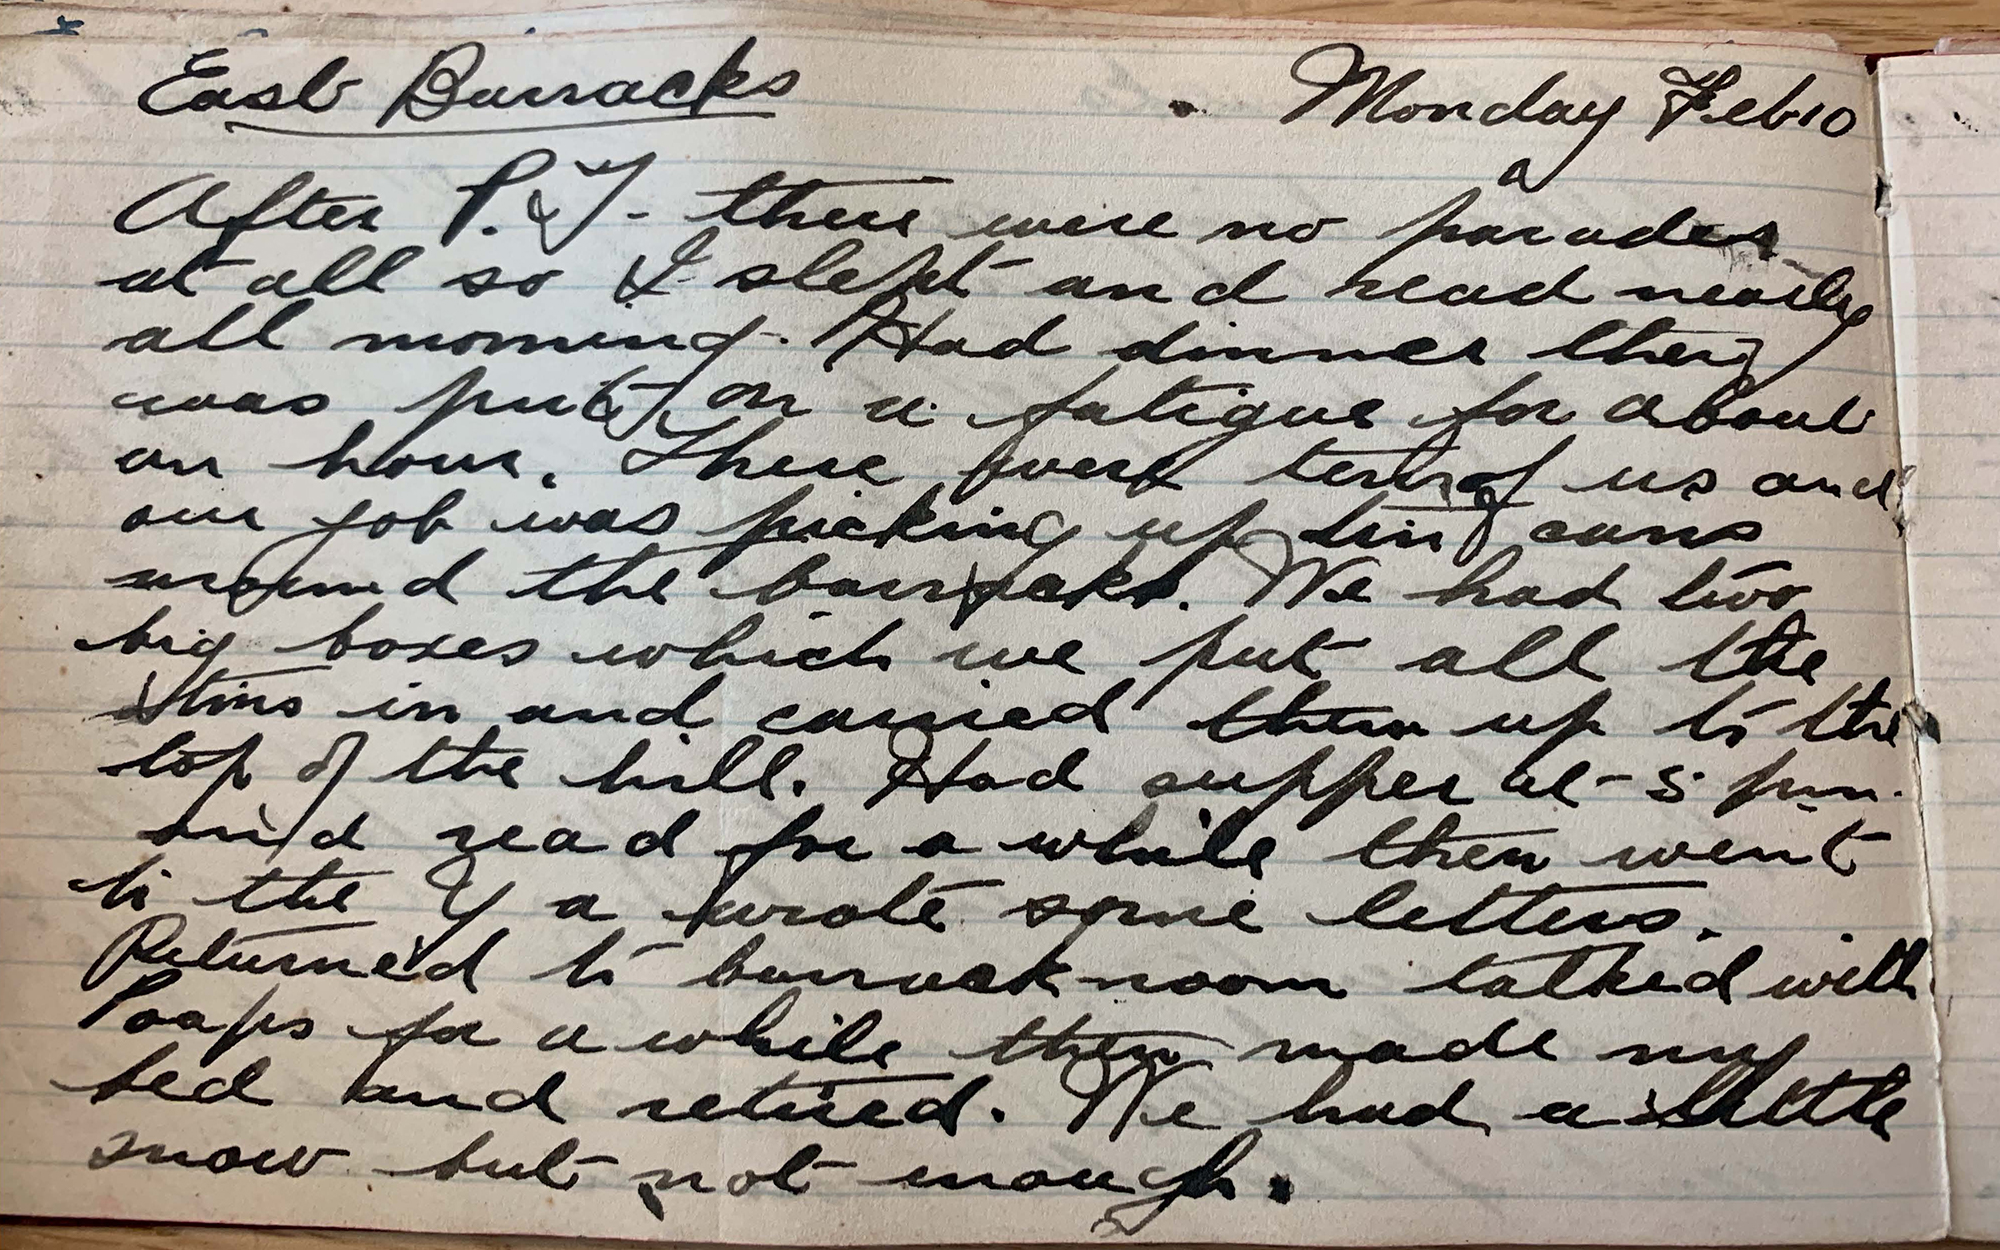 East Barracks Monday Feb 10
After P.&T. there were no parades
at all so I slept and read nearly
all morning. Had dinner then
was put on a fatigue for about
an hour. There were ten of us and
our job was picking up tin cans
around the barracks. We had two
big boxes which we put all the
tins in and carried them up to the
top of the hill. Had supper at 5 pm.
and read for a while then went
to the Y a wrote some letters.
Returned to barrack room talked with
Poaps for a while then made my
bed and retired. We had a little
snow but not enough.